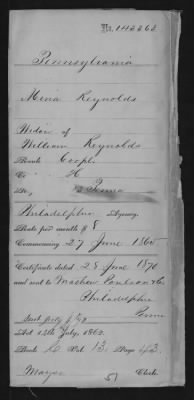 No. 142363
Pennsylvania
Mina Reynolds
Widow of
William Reynolds
Rank
Co. H
Penna
Philadelphia Agency.
Rate per month $ 8
Commencing 27 June 1865
Certificate dated 28 June 1870
and sent to Mathew
Philadelphia
Penna
Act 14th July, 1862.
Book Vol. 13. Page 43
Clerk.
51